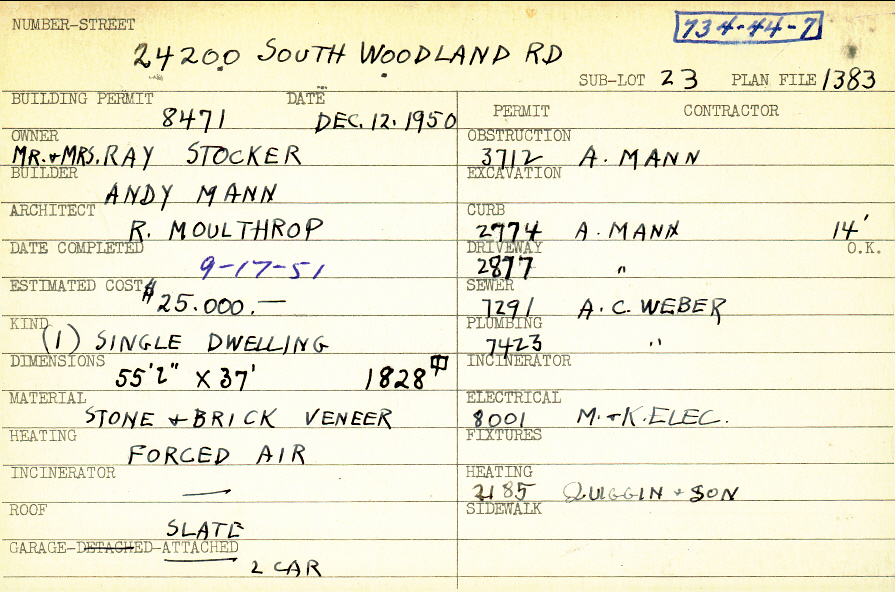 NUMBER-STREET
734-44-7
24200 SOUTH WOODLAND RD
SUB-LOT 23 PLAN FILE 1383
BUILDING PERMIT DATE
8471 DEC. 12. 1950
OWNER
MR. & MRS. RAY STOCKER
BUILDER
ANDY MANN
ARCHITECT
R. MOULTHROP
DATE COMPLETED
9-17-51
ESTIMATED COST $25.000.—
KIND
(1) SINGLE DWELLING
DIMENSIONS
55'2" X 37' 1828
MATERIAL
STONE & BRICK VENEER
HEATING
FORCED AIR
INCINERATOR
—
ROOF
SLATE
GARAGE-DETACHED-ATTACHED
2 CAR
PERMIT CONTRACTOR
OBSTRUCTION
3712 A. MANN
EXCAVATION
CURB
2774 A. MANN 14'
DRIVEWAY O.K.
2877 "
SEWER
7291 A. C. WEBER
PLUMBING
7423 "
INCINERATOR
ELECTRICAL
8001 M. & K. ELEC.
FIXTURES
HEATING
2185 QUIGGIN & SON
SIDEWALK